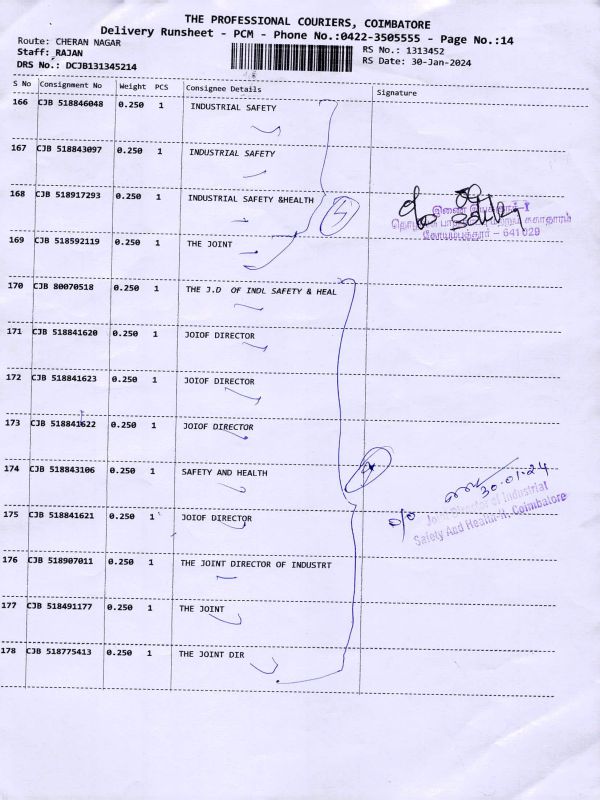 THE PROFESSIONAL COURIERS, COIMBATORE
Delivery Runsheet - PCM - Phone No.:0422-3505555 - Page No.:14
Route: CHERAN NAGAR
RS No.: 1313452
Staff: RAJAN
RS Date: 30-Jan-2024
DRS No.: DCJB131345214
S No Consignment No Weight PCS Consignee Details Signature
166 CJB 518846048 0.250 1 INDUSTRIAL SAFETY
167 CJB 518843097 0.250 1 INDUSTRIAL SAFETY
168 CJB 518917293 0.250 1 INDUSTRIAL SAFETY &HEALTH
இணை
கோயம்புத்தூர் – 641 029
169 CJB 518592119 0.250 1 THE JOINT
170 CJB 80070518 0.250 1 THE J.D OF INDL SAFETY & HEAL
171 CJB 518841620 0.250 1 JOIOF DIRECTOR
172 CJB 518841623 0.250 1 JOIOF DIRECTOR
173 CJB 518841622 0.250 1 JOIOF DIRECTOR
174 CJB 518843106 0.250 1 SAFETY AND HEALTH
30.01.24
Joint Director of Industrial
Safety And Health-II, Coimbatore
175 CJB 518841621 0.250 1 JOIOF DIRECTOR
176 CJB 518907011 0.250 1 THE JOINT DIRECTOR OF INDUSTRT
177 CJB 518491177 0.250 1 THE JOINT
178 CJB 518775413 0.250 1 THE JOINT DIR